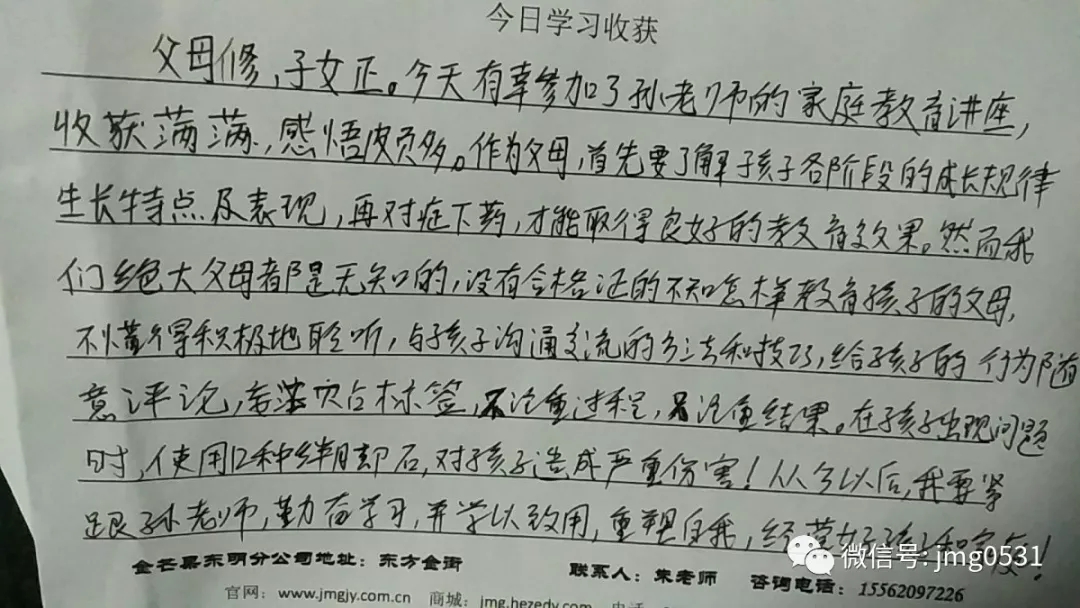 今日学习收获
父母修，子女正。今天有幸参加了孙老师的家庭教育讲座，
收获满满，感悟颇多。作为父母，首先要了解子孩子各阶段的成长规律
生长特点及表现，再对症下药，才能取得良好的教育效果。然而我
们绝大父母都是无知的，没有合格证的不知怎样教育孩子的父母，
不懂得积极地聆听，与孩子沟通交流的方法和技巧，给孩子的行为随
意评论，贴标签，不注重过程，只注重结果。在孩子出现问题
时，使用12种绊脚石，对孩子造成严重伤害！从今以后，我要紧
跟孙老师，勤奋学习，并学以致用，重塑自我，经营好孩子和家庭！
金芒果东明分公司地址：东方金街 联系人：朱老师 咨询电话：15562097226
官网：www.jmgjy.com.cn 商城：jmg.hezedy.com
微信号: jmg0531